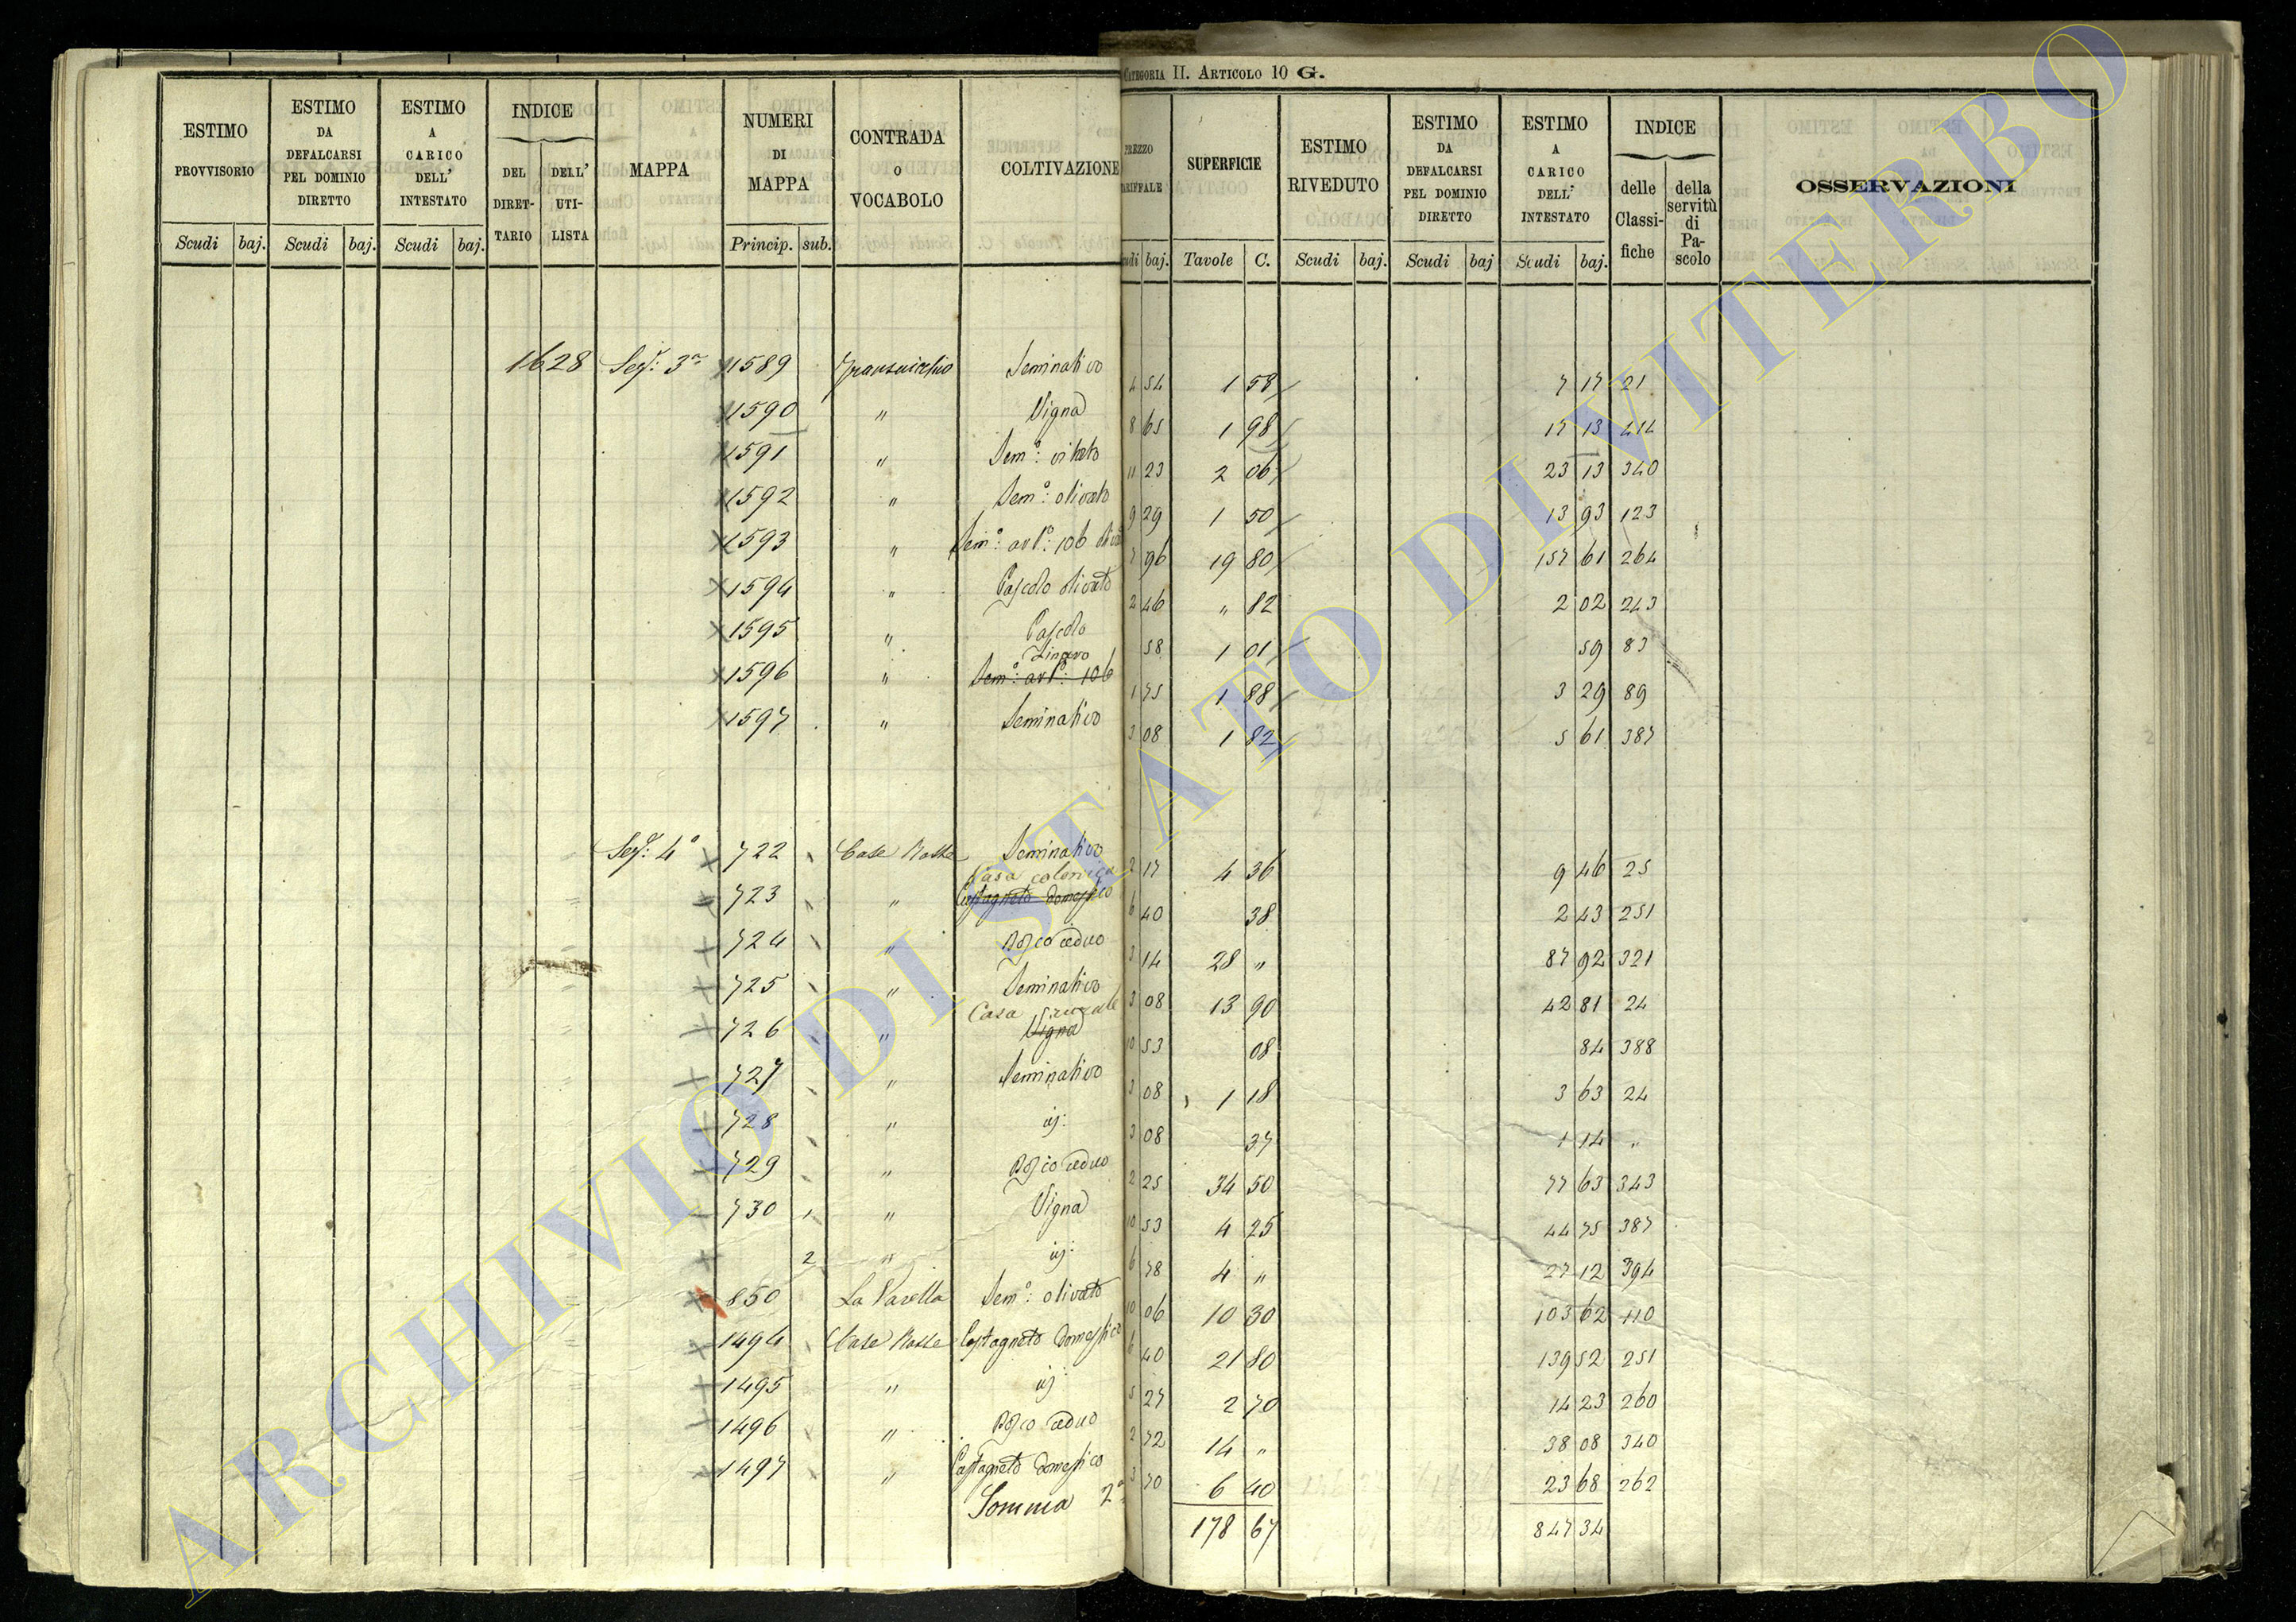 CATEGORIA II. ARTICOLO 10 G.
ESTIMO PROVVISORIO | ESTIMO DA DEFALCARSI PEL DOMINIO DIRETTO | ESTIMO A CARICO DELL' INTESTATO | INDICE DEL DIRETTARIO | DELL' UTILISTA | MAPPA | NUMERI DI MAPPA | CONTRADA O VOCABOLO | COLTIVAZIONE | PREZZO TARIFFALE | SUPERFICIE | ESTIMO RIVEDUTO | ESTIMO DA DEFALCARSI PEL DOMINIO DIRETTO | ESTIMO A CARICO DELL' INTESTATO | INDICE delle Classifiche | della servitù di Pascolo | OSSERVAZIONI
Scudi | baj. | Scudi | baj. | Scudi | baj. | Princip. | sub. | baj. | Tavole | C. | Scudi | baj. | Scudi | baj | Scudi | baj.
1628 Sez: 3a 1589 Seminativo 4 54 1 58 7 17 21
1590 " Vigna 8 65 1 98 17 13 414
1591 " Sem°: vitato 11 23 2 06 23 13 340
1592 " Sem°: olivato 9 29 1 50 13 93 123
1593 " Sem°: arb°: 106 7 96 19 80 157 61 264
1594 " Pascolo olivato 2 46 " 82 2 02 243
1595 " Pascolo 58 1 01 59 83
1596 " Sem°: arb°: 106 1 75 1 88 3 29 89
1597 " Seminativo 3 08 1 82 5 61 387
Sez: 4a 722 Case Rosse Seminativo 2 17 4 36 9 46 25
Casa colonica
723 " Castagneto domestico 6 40 38 2 43 251
724 " Bosco ceduo 3 14 28 " 87 92 321
725 " Seminativo 3 08 13 90 42 81 24
Casa rurale
726 " Vigna 10 53 08 84 388
727 " Seminativo 3 08 1 18 3 63 24
728 " id: 3 08 37 1 14 "
729 " Bosco ceduo 2 25 34 50 77 63 343
730 1 " Vigna 10 53 4 25 44 75 387
2 " id: 6 78 4 " 27 12 394
850 Sem°: olivato 10 06 10 30 103 62 110
1494 Case Rosse Castagneto domestico 6 40 21 80 139 52 251
1495 " id: 5 27 2 70 14 23 260
1496 " Bosco ceduo 2 72 14 " 38 08 340
1497 " Castagneto domestico 3 70 6 40 23 68 262
Somma 2a 178 67 847 34
ARCHIVIO DI STATO DI VITERBO